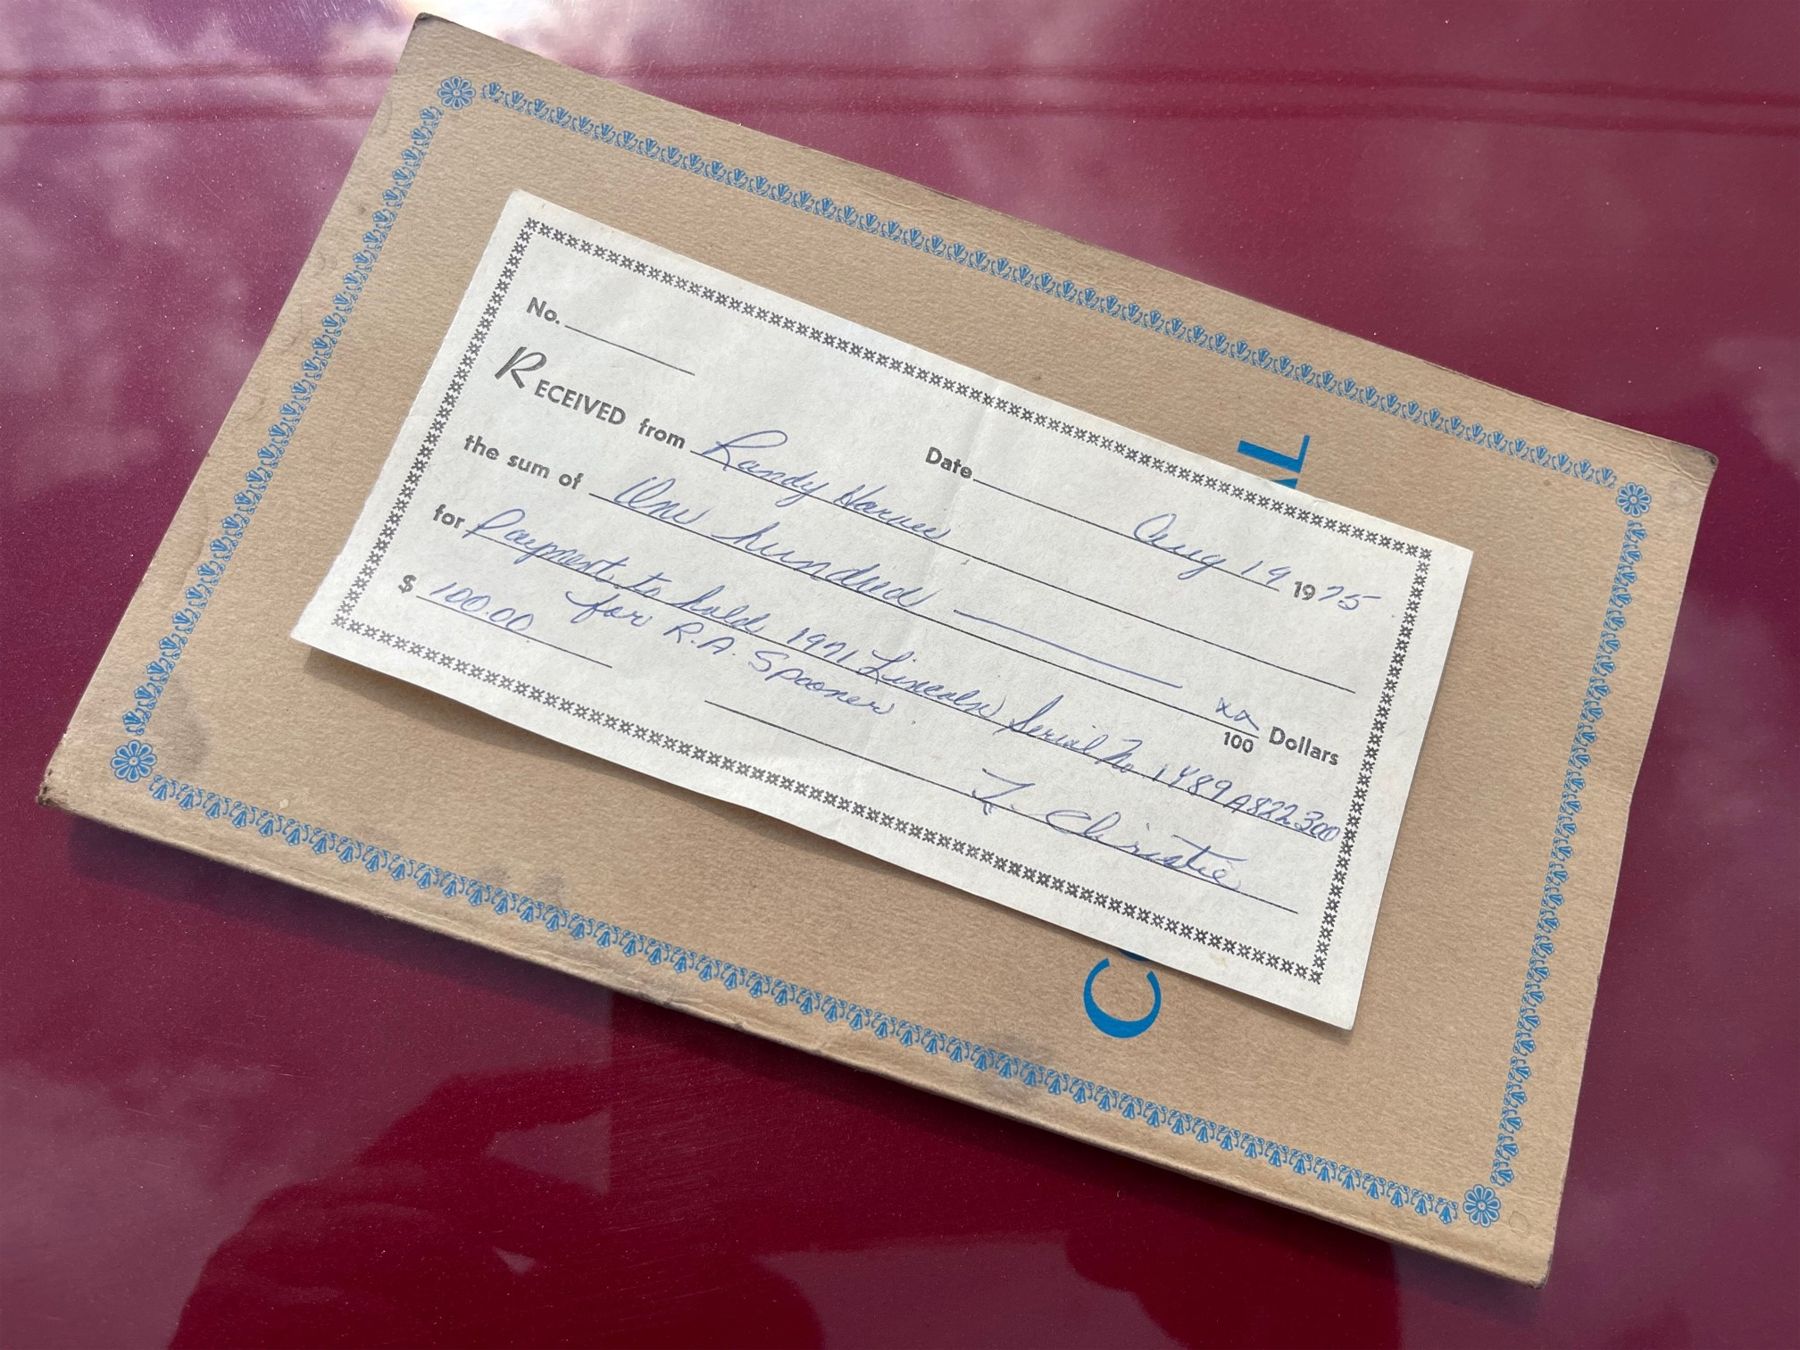 No.
Date Aug 19 1975
RECEIVED from Randy Harvie
the sum of One hundred xx/100 Dollars
for Payment to hold 1971 Lincoln Serial No 1Y89A822300
for R.A. Spooner
$ 100.00
L. Christie
C
AL